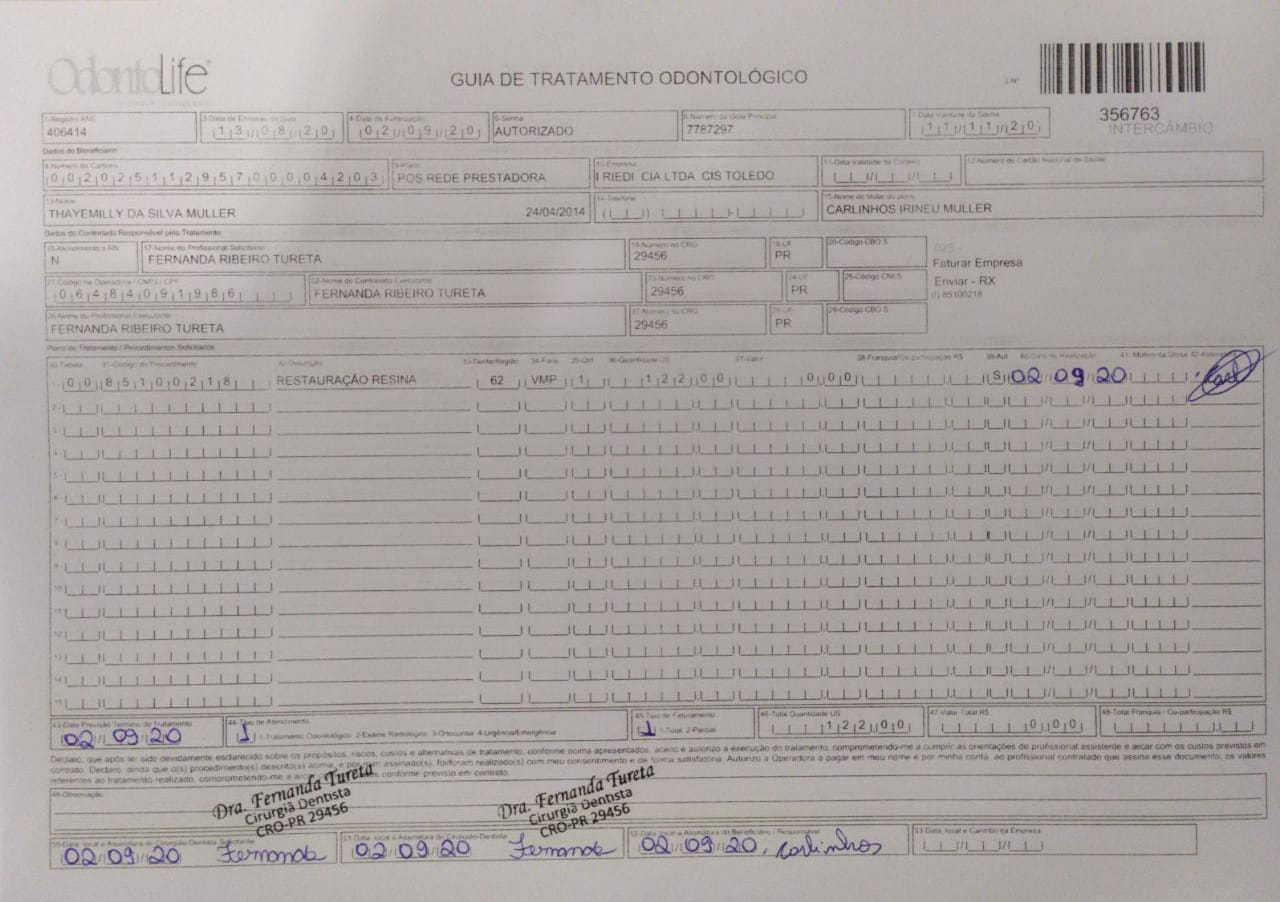 OdontoLife
GUIA DE TRATAMENTO ODONTOLÓGICO
2-Nº
356763
INTERCÂMBIO
1-Registro ANS
406414
3-Data de Emissão da Guia
13/08/20
4-Data de Autorização
02/09/20
5-Senha
AUTORIZADO
6-Número da Guia Principal
7787297
7-Data Validade da Senha
11/11/20
Dados do Beneficiário
8-Número da Carteira
00202511295700004203
9-Plano
POS REDE PRESTADORA
10-Empresa
I RIEDI CIA LTDA CIS TOLEDO
11-Data Validade da Carteira
12-Número do Cartão Nacional de Saúde
13-Nome
THAYEMILLY DA SILVA MULLER 24/04/2014
14-Telefone
15-Nome do titular do plano
CARLINHOS IRINEU MULLER
Dados do Contratado Responsável pelo Tratamento
16-Atendimento a RN
N
17-Nome do Profissional Solicitante
FERNANDA RIBEIRO TURETA
18-Número no CRO
29456
19-UF
PR
20-Código CBO S
025 -
Faturar Empresa
Enviar - RX
(I) 85100218
21-Código na Operadora / CNPJ / CPF
06484091986
22-Nome do Contratado Executante
FERNANDA RIBEIRO TURETA
23-Número no CRO
29456
24-UF
PR
25-Código CNES
26-Nome do Profissional Executante
FERNANDA RIBEIRO TURETA
27-Número no CRO
29456
28-UF
PR
29-Código CBO S
Plano de Tratamento / Procedimentos Solicitados
30-Tabela 31-Código do Procedimento 32-Descrição 33-Dente/Região 34-Face 35-Qtd 36-Quantidade US 37-Valor 38-Franquia/Co-participação R$ 39-Aut 40-Data de Realização 41- Motivo da Glosa 42-Assinatura
00 85100218 RESTAURAÇÃO RESINA 62 VMP 1 122,00 0,00 S 02/09/20
2-
3-
4-
5-
6-
7-
8-
9-
10-
11-
12-
13-
14-
15-
43-Data Previsão Término do Tratamento
02/09/20
44-Tipo de Atendimento
1 1-Tratamento Odontológico 2-Exame Radiológico 3-Ortodontia 4-Urgência/Emergência
45-Tipo de Faturamento
1 1-Total 2-Parcial
46-Total Quantidade US
122,00
47-Valor Total R$
0,00
48-Total Franquia / Co-participação R$
Declaro, que após ter sido devidamente esclarecido sobre os propósitos, riscos, custos e alternativas de tratamento, conforme acima apresentados, aceito e autorizo a execução do tratamento, comprometendo-me a cumprir as orientações do profissional assistente e arcar com os custos previstos em
contrato. Declaro, ainda que o(s) procedimento(s) descrito(s) acima, e por mim assinado(s), foi/foram realizado(s) com meu consentimento e de forma satisfatória. Autorizo a Operadora a pagar em meu nome e por minha conta, ao profissional contratado que assina esse documento, os valores
referentes ao tratamento realizado, comprometendo-me a arcar conforme previsto em contrato.
49-Observação
Dra. Fernanda Tureta
Cirurgiã Dentista
CRO-PR 29456
Dra. Fernanda Tureta
Cirurgiã Dentista
CRO-PR 29456
50-Data, local e Assinatura do Cirurgião-Dentista Solicitante
02/09/20 Fernanda
51-Data, local e Assinatura do Cirurgião-Dentista
02/09/20 Fernanda
52-Data, local e Assinatura do Beneficiário / Responsável
02/09/20. Carlinhos
53-Data, local e Carimbo da Empresa